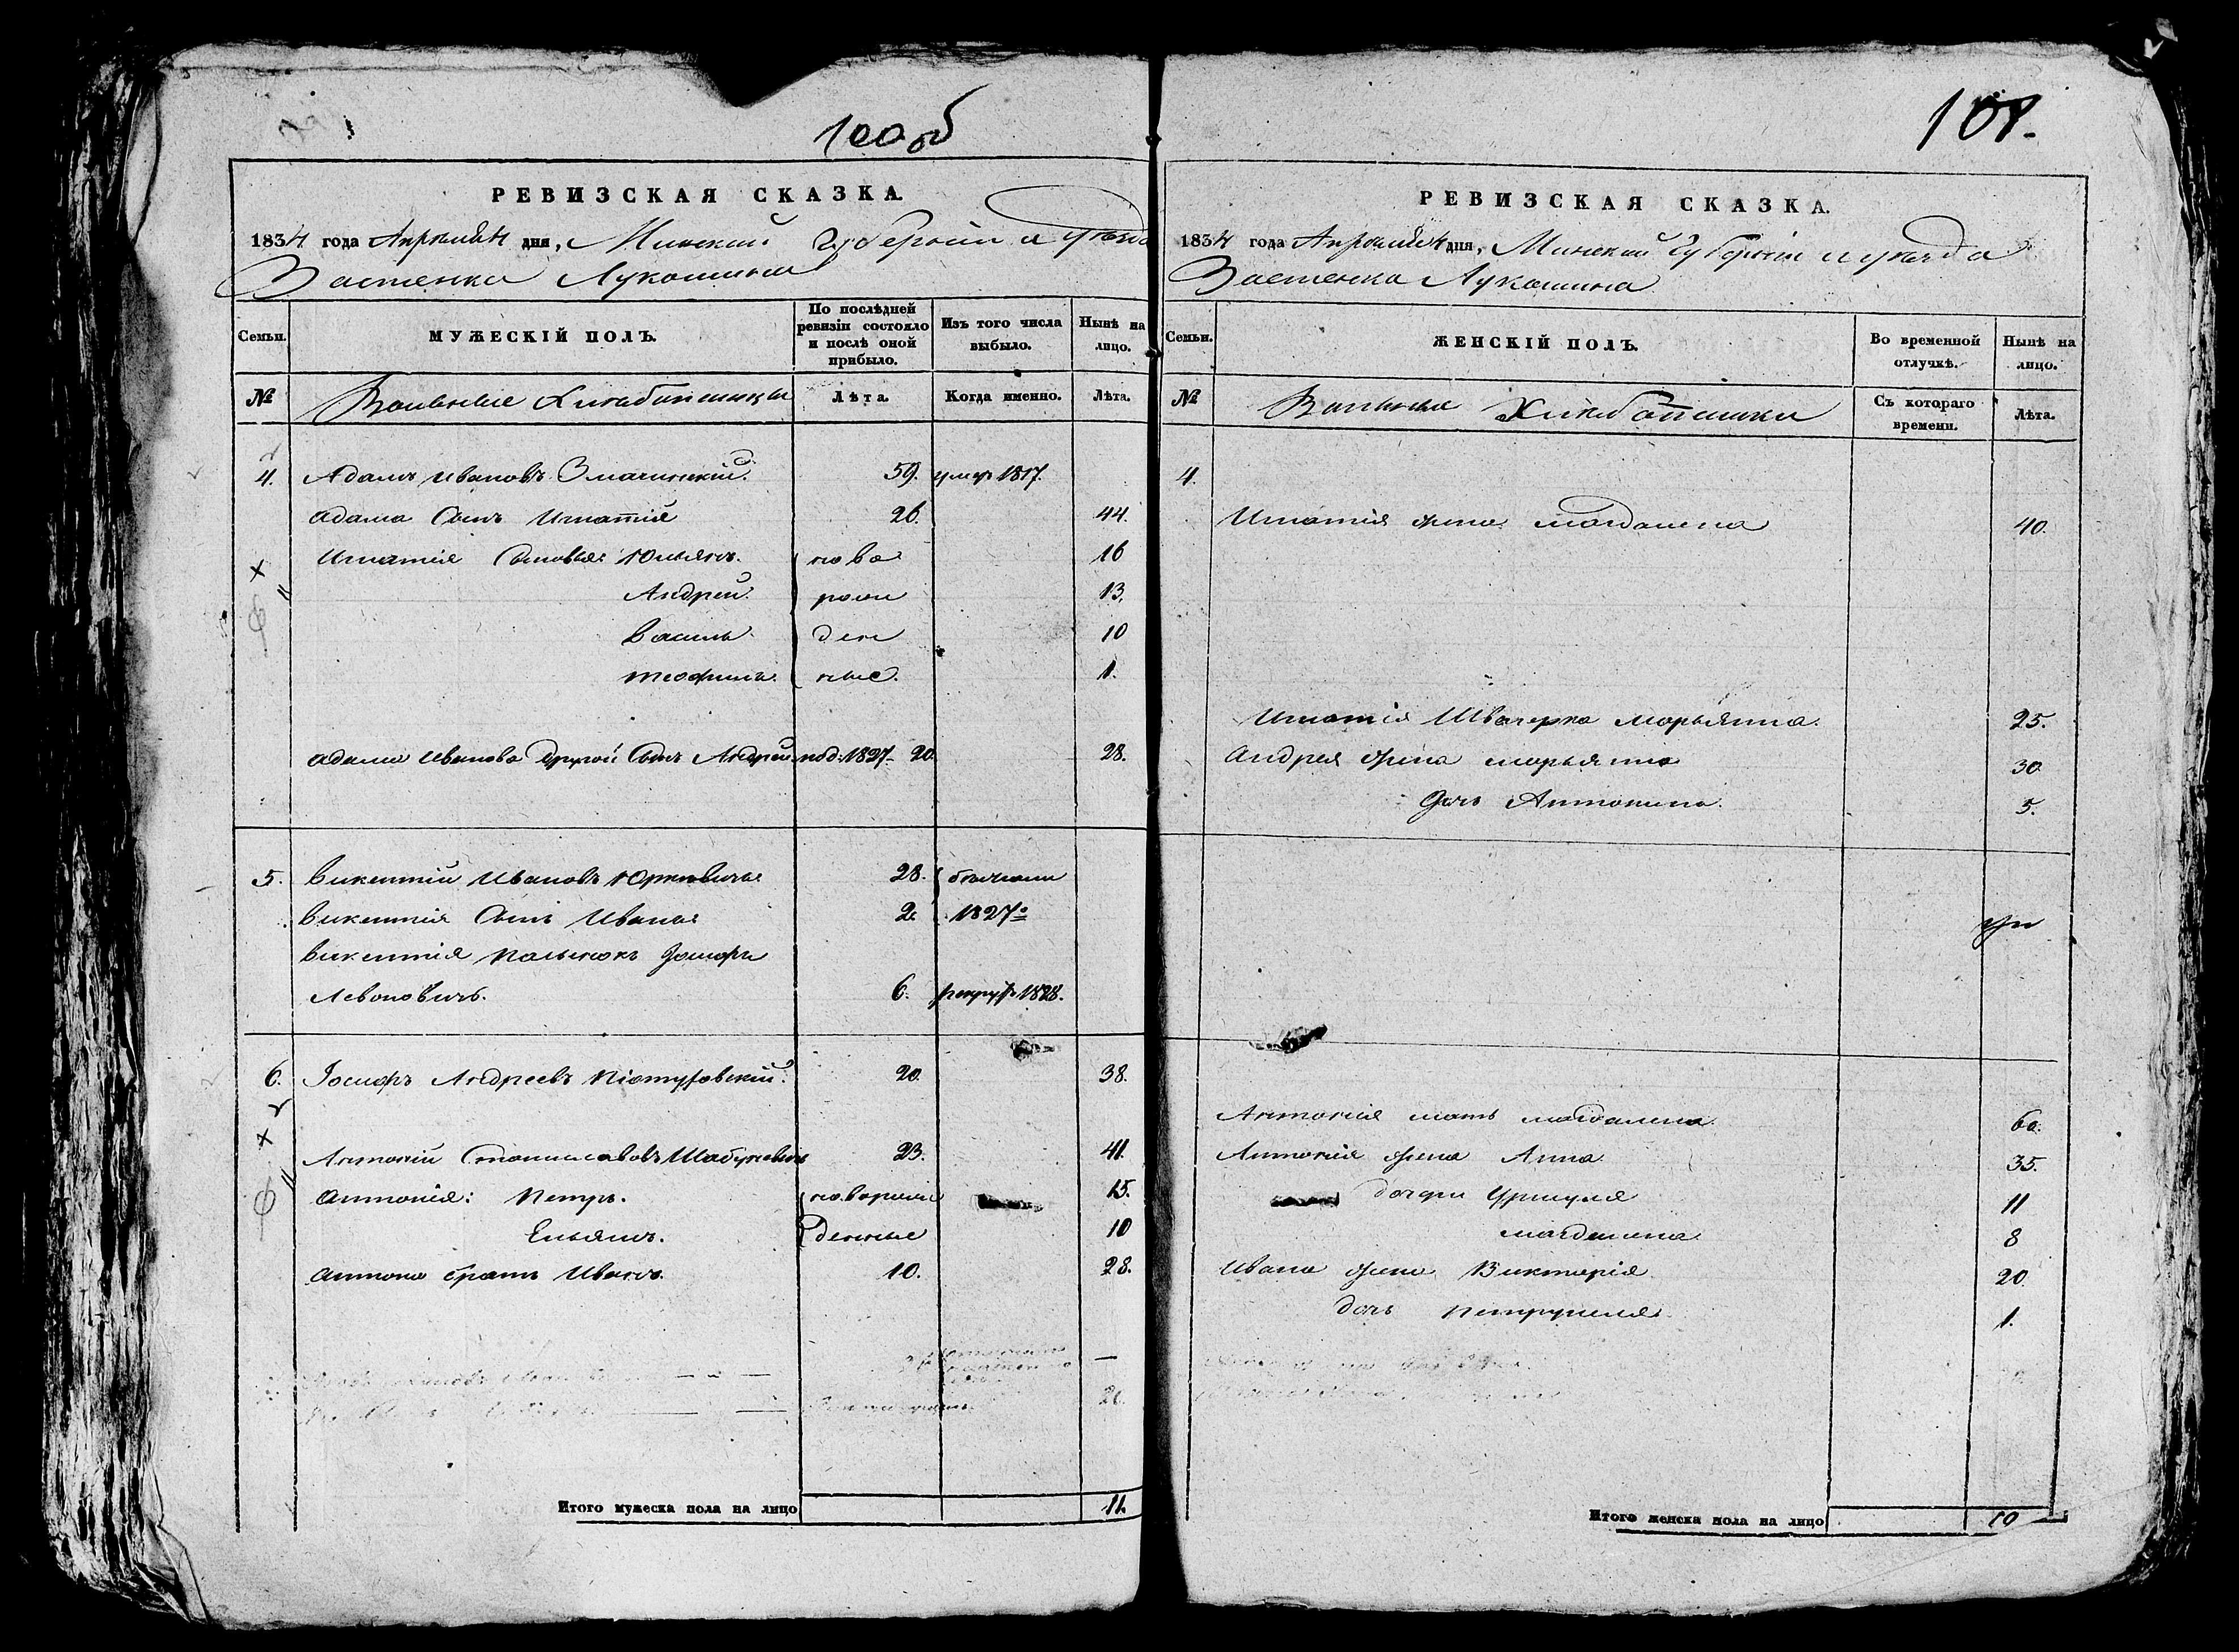 100об
РЕВИЗСКАЯ СКАЗКА.
1834 года Апреля 4 дня, Минской Губернии и Уезда
Застенка Лукошина
Семьи.
МУЖЕСКІЙ ПОЛЪ.
По послѣдней ревизіи состояло и послѣ оной прибыло.
Изъ того числа выбыло.
Нынѣ на лицо.
№
Вольные Хлебопашцы
Лѣта.
Когда именно.
Лѣта.
4. Адамъ Ивановъ 59. умеръ 1817.
Адама Сынъ Игнатій 26. 44.
Игнатія Сыновья: Юльянъ. ново 16
Андрей. рож 13.
Василь. ден 10
Теофиль. ные. 1.
Адама Иванова другой Сынъ Андрей 1827 20 28.
5. Викентій Ивановъ Юркевичъ 28. бежали
Викентія Сынъ Иванъ 2. 1827º
Викентія Іосифъ
Левоновичъ. 6. рекрут 1828.
6. Іосифъ Андреевъ Піотуховскій. 20. 38.
Антоній Станиславовъ Шабуневичъ 23. 41.
Антонія: Петръ. новорож 15.
Ельяшъ. денные 10
Антона братъ Иванъ. 10. 28.
Итого мужеска пола на лицо 11.
101.
РЕВИЗСКАЯ СКАЗКА.
1834 года Апреля 4 дня, Минской Губерніи и уезда
Застенка Лукошина
Семьи.
ЖЕНСКІЙ ПОЛЪ.
Во временной отлучкѣ.
Нынѣ на лицо.
№
Вольные Хлебопашцы
Съ котораго времени.
Лѣта.
4.
Игнатія жена Магдалена 40.
Игнатія Швагерка Марьянна. 25.
Андрея жена Марьянна 30
дочь Антонина. 5.
Антонія мать Магдалена. 60.
Антонія жена Анна 35.
дочери Уршуля 11
Магдалена 8
Ивана жена Викторія 20
дочь Петрунеля. 1.
Итого женска пола на лицо 10